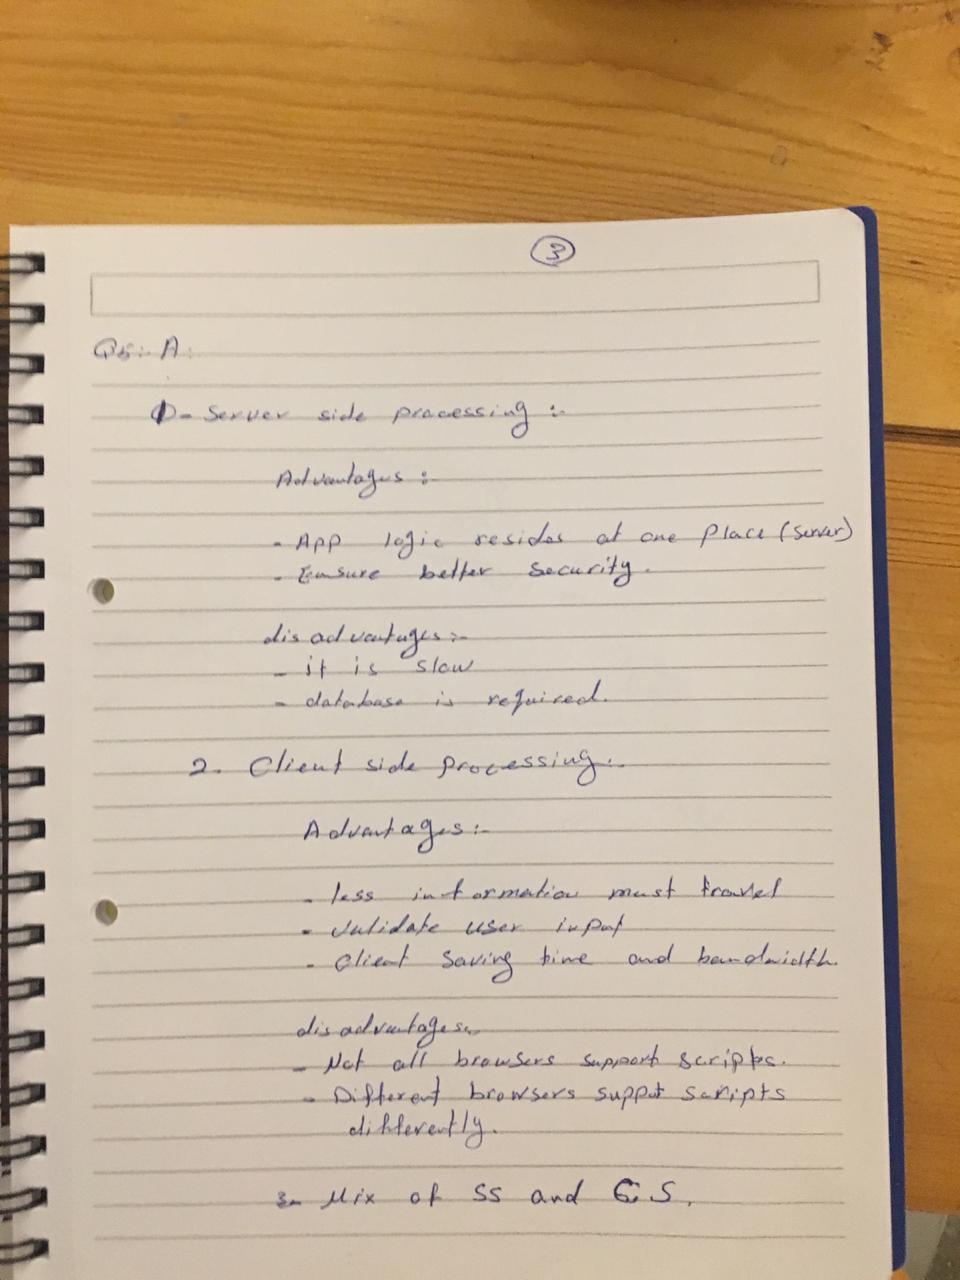 3
Q5:- A:
1- Server side processing :-
Advantages :-
- App logic resides at one place (server)
- Ensure better security.
disadvantages :-
- it is slow
- database is required.
2. Client side processing :-
Advantages :-
- less information must travel
- validate user input
- Client saving time and bandwidth.
disadvantages :-
- Not all browsers support scripts.
- Different browsers support scripts
differently.
3- Mix of SS and CS.